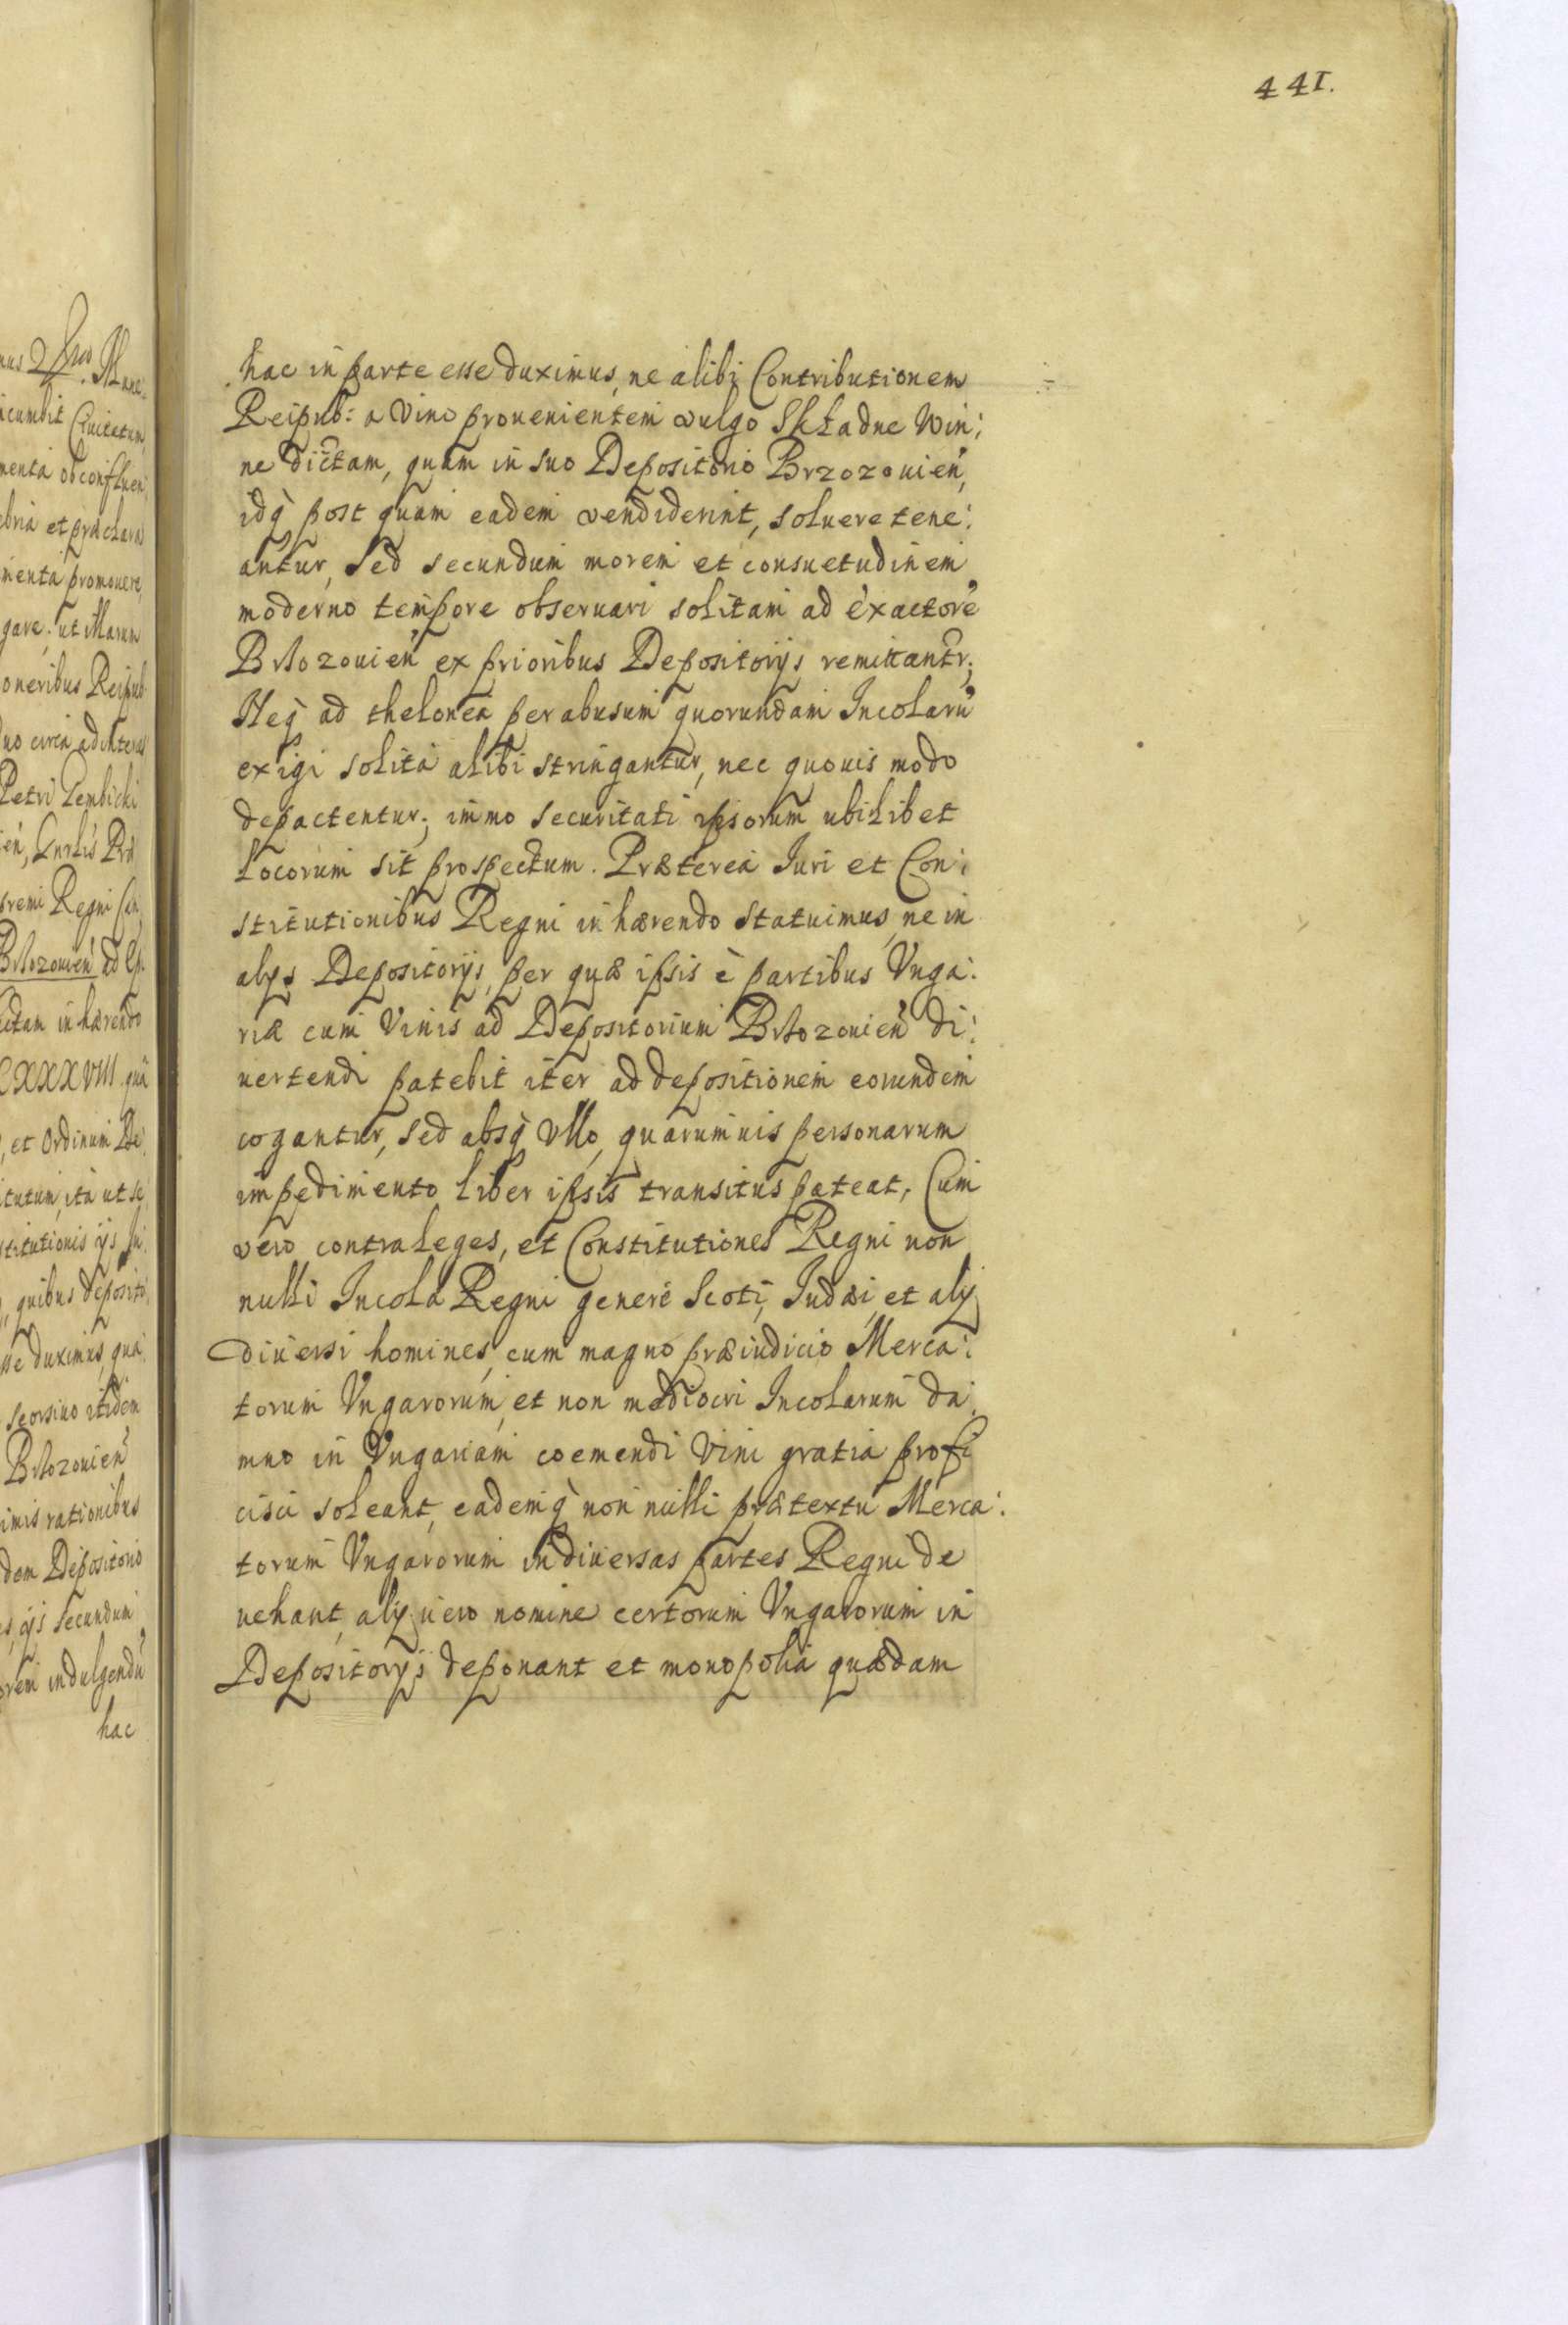 441.
hac in parte esse duximus, ne alibi Contributionem
Reipub: a Vino prouenientem vulgo Składne Win:
ne dictam, quam in suo Depositorio Brzozouień,
idq̀ post quam eadem vendiderint, soluere tene:
antur, Sed secundum morem et consuetudinem
moderno tempore obseruari solitam ad exactorē
Brzozouień ex prioribus Depositorijs remittantr;
Neq̀ ad thelonea per abusum quorundam Incolarū
exigi solita alibi stringantur, nec quouis modo
depactentur; immo securitati ipsorum ubilibet
locorum sit prospectum. Præterea Iuri et Con:
stitutionibus Regni inhærendo statuimus, ne in
alijs Depositorijs, per quæ ipsis è partibus Vnga:
riæ cum Vinis ad Depositorium Brzozouień di:
uertendi patebit iter ad depositionem eorundem
cogantur, sed absq̀ vllo, quarumuis personarum
impedimento liber ipsis transitus pateat, Cum
vero contra leges, et Constitutiones Regni non
nulli Incola Regni genere Scoti, Iudæi, et alij
diuersi homines, cum magno præiudicio Merca:
torum Vngarorum, et non mediocri Incolarum da:
mno in Vngariam coemendi Vini gratia profi
cisci soleant, eademq̀ non nulli prætextu Merca:
torum Vngarorum in diuersas partes Regni de
uehant, alij uero nomine certorum Vngarorum in
Depositorijs deponant et monopolia quædam
icumbit Ciuitatum
menta ob conflu
promouere,
gare; ut
oneribus Reipub
Petri Gembicki
Regni
Brzozouień ad
inhærendo
CXXXVIII quā
et Ordinum
ita ut se
stitutionis ijs
quibus deposito
sse duximus, qua
seorsiuo itidem
Brzozouień
imis rationibus
dem Depositorio
ijs secundum
orem indulgendū
hac